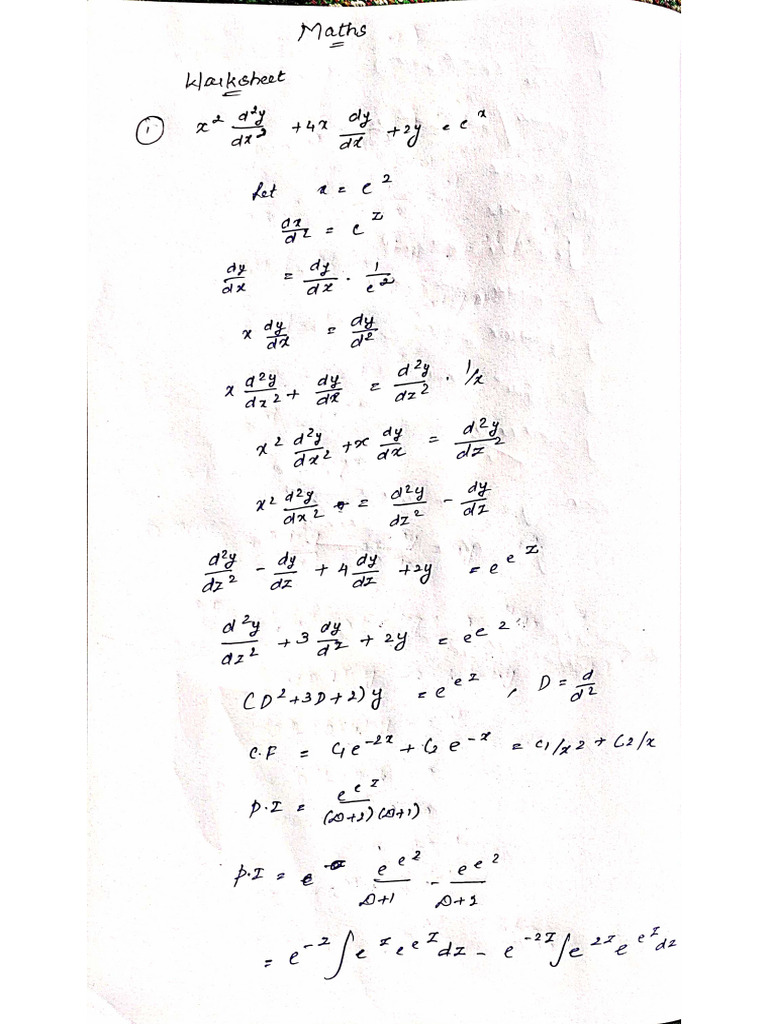 Maths
Worksheet
① x² d²y/dx² + 4x dy/dx + 2y = e^x
Let x = e^z
dx/dz = e^z
dy/dx = dy/dx · 1/e^z
x dy/dx = dy/dz
x d²y/dx² + dy/dx = d²y/dz² · 1/x
x² d²y/dx² + x dy/dx = d²y/dz²
x² d²y/dx² = d²y/dz² - dy/dz
d²y/dz² - dy/dz + 4 dy/dz + 2y = e^e^z
d²y/dz² + 3 dy/dz + 2y = e^e^z
(D² + 3D + 2)y = e^e^z , D = d/dz
C.F = C₁e^-2x + C₂e^-x = C₁/x² + C₂/x
P.I = e^e^z/(D+2)(D+1)
P.I = e^e^z/D+1 - e^e^z/D+2
= e^-z ∫e^z e^e^z dz - e^-2z ∫e^2z e^e^z dz